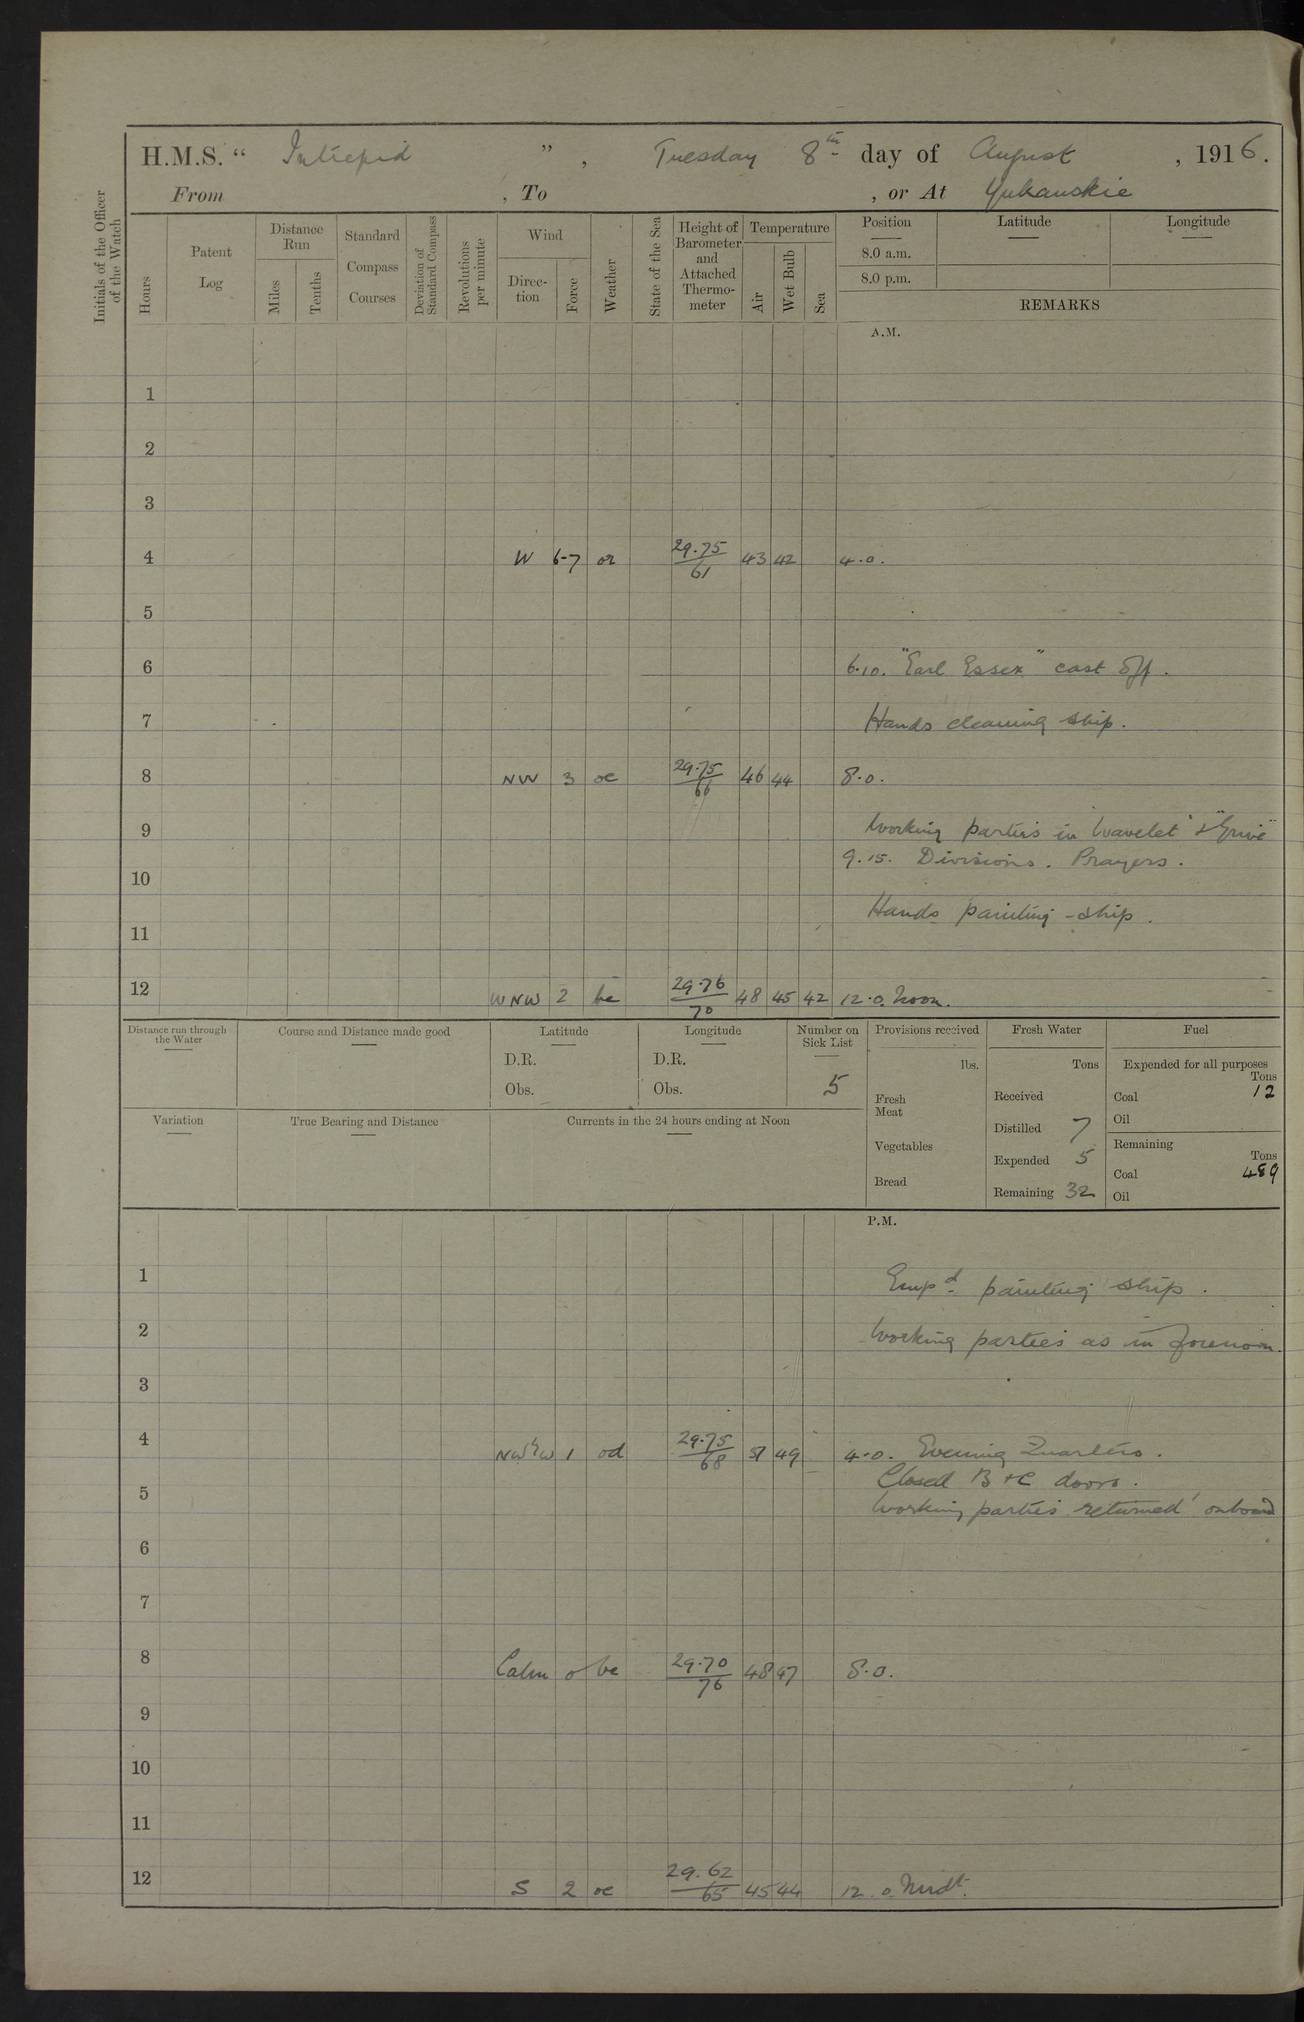 H.M.S. “ Intrepid ” , Tuesday 8th day of August , 1916.
From , To , or At Yukanskie
Initials of the Officer of the Watch
Hours
Patent Log
Distance Run
Miles
Tenths
Standard Compass Courses
Deviation of Standard Compass
Revolutions per minute
Wind
Direction
Force
Weather
State of the Sea
Height of Barometer and Attached Thermometer
Temperature
Air
Wet Bulb
Sea
Position Latitude Longitude
8.0 a.m.
8.0 p.m.
REMARKS
A.M.
1
2
3
4 W 6-7 or 29.75/61 43 42 4.0.
5
6 6.10. "Earl Essex" cast off.
7 Hands cleaning ship.
8 NW 3 oc 29.75/66 46 44 8.0.
9 Working parties in Wavelet" & "Grive"
9.15. Divisions. Prayers.
10
Hands painting ship.
11
12 WNW 2 bc 29.76/70 48 45 42 12.0. Noon.
Distance run through the Water
Course and Distance made good
Latitude
D.R.
Obs.
Longitude
D.R.
Obs.
Number on Sick List
5
Provisions received
lbs.
Fresh Meat
Vegetables
Bread
Fresh Water
Tons
Received
Distilled 7
Expended 5
Remaining 32
Fuel
Expended for all purposes
Tons
Coal 12
Oil
Remaining
Tons
Coal 489
Oil
Variation
True Bearing and Distance
Currents in the 24 hours ending at Noon
P.M.
1 Empd painting ship.
2 Working parties as in forenoon.
3
4 NW by W 1 od 29.75/68 51 49 4.0. Evening Quarters.
Closed B & C doors.
5 Working parties returned onboard
6
7
8 Calm 0 bc 29.70/76 48 47 8.0.
9
10
11
12 S 2 oc 29.62/65 45 44 12.0. Midt.